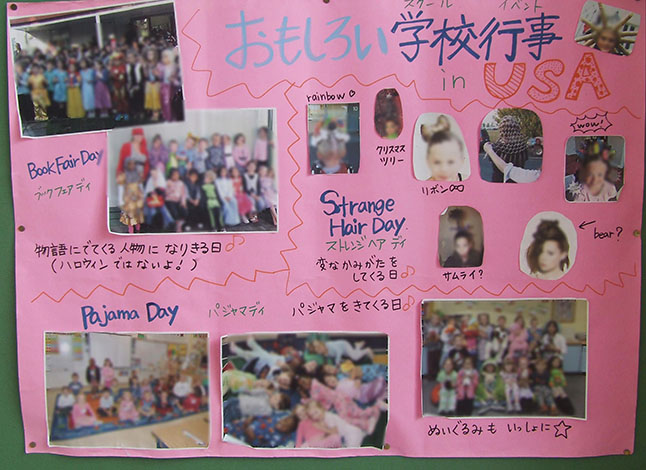 スクール イベント
おもしろい学校行事
in USA
Book Fair Day
ブックフェア デイ
物語にでてくる人物に なりきる日♪
(ハロウィンではないよ!)
rainbow♡
クリスマス
ツリー
リボン
wow!
Strange
Hair Day
ストレンジ ヘア デイ
変なかみがたを
してくる日♪
サムライ?
← bear?
Pajama Day
パジャマデイ
パジャマをきてくる日♪
ぬいぐるみも いっしょに☆